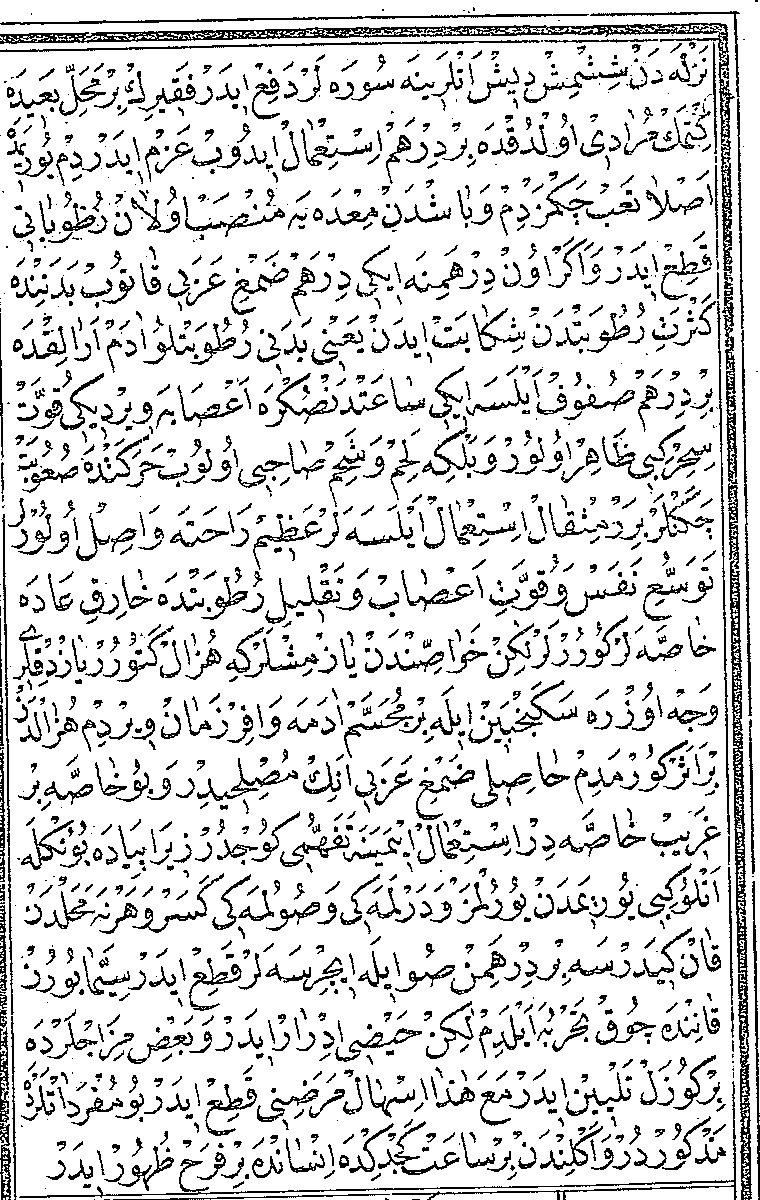 نَزْلَه دَنْ شِشْمِشْ دِيشْ اَتْلَرِينَه سُورَه لَرْ دَفِعْ اِيدَرْ فَقِيرِكْ بِرْ مَحَلِّ بَعِيدَه
كِتْمَكْ مُرَادِى اُولْدُقْدَه بِرْ دِرْهَمْ اِسْتِعْمَالْ اِيدُوبْ عَزْمِ اِيدَرْدِمْ
اَصْلَا تَعَبْ چَكْمَزْدِمْ وَبَاشْدَنْ مِعْدَه يَه مُنْصَبْ اُولَانْ رُطُوبَاتِى
قَطِعْ اِيدَرْ وَاَكَرْ اُونْ دِرْهَمِنَه اِيكِى دِرْهَمْ صَمْغِ عَرَبِى قَاتُوبْ بَدَنِنْدَه
كَثْرَتِ رُطُوبَتْدَنْ شِكَايَتْ اِيدَنْ يَعْنِى بَدَنِى رُطُوبَتْلُو اٰدَمْ اٰرَالِقْدَه
بِرْ دِرْهَمْ صُفُوفْ اَيْلَسَه اِيكِى سَاعَتْدَنْصُكْرَه اَعْصَابَه وِيرْدِيكِى قُوَّتْ
سِحِرْ كِبِى ظَاهِرْ اُولُورْ وَبَلْكِه لَحِمْ وَشَحِمْ صَاحِبِى اُولُوبْ حَرَكَتْدَه صُعُوبَتْ
چَكَنْلَرْ بِرَرْ مِثْقَالْ اِسْتِعْمَالْ اَيْلَسَه لَرْ عَظِيمْ رَاحَتَه وَاصِلْ اُولُورْلَرْ
تَوَسُّعِ نَفَسْ وَقُوَّتِ اَعْصَابْ وَتَقْلِيلِ رُطُوبَتْدَه خَارِقِ عَادَه
خَاصَّه لَرْ كُورُرْلَرْ لٰكِنْ خَوَاصِّنْدَنْ يَازْمِشْلَرْكِه هُزَالْ كَتُورُرْ يَازْدِقْلَرِى
وَجْه اُوزْرَه سَكَنْجَبِينْ اِيلَه بِرْ مُجَسَّمْ اٰدَمَه وَافِرْ زَمَانْ وِيرْدِمْ هُزَالْدَنْ
بِرْ اَثَرْ كُورْمَدِمْ حَاصِلِى صَمْغِ عَرَبِى اَنِكْ مُصْلِحِيدِرْ وَبُو خَاصَّه بِرْ
غَرِيبْ خَاصَّه دِرْ اِسْتِعْمَالْ اِيتْمَيَنَه تَفَهُّمِى كُوجْدُرْ زِيرَا پِيَادَه بُونُكْلَه
اَتْلُو كِبِى يُورِيمَدَنْ يُورُلْمَزْ وَدَرْلَمَه كِى وَصُولُمَه كِى كَسَرْ وَهَرْ نَه مَحَلْدَنْ
قَانْ كِيدَرْسَه بِرْ دِرْهَمِنْ صُو اِيلَه اِيچِرْسَه لَرْ قَطِعْ اِيدَرْ سِيَّمَا بُورُنْ
قَانِنْدَه چُوقْ تَجْرُبَه اَيْلَدِمْ لٰكِنْ حَيْضِى اِدْرَارْ اِيدَرْ وَبَعْضِ مِزَاجْلَرْدَه
بِرْ كُوزَلْ تَلْيِينْ اِيدَرْ مَعَ هٰذَا اِسْهَالْ مَرَضِنِى قَطِعْ اِيدَرْ بُو مُفْرَدَاتْلَرْدَه
مَذْكُورْدُرْ وَاَكْلِنْدَنْ بِرْ سَاعَتْ كَچْدِكْدَه اِنْسَانْدَه بِرْ فَرَحْ ظُهُورْ اِيدَرْ